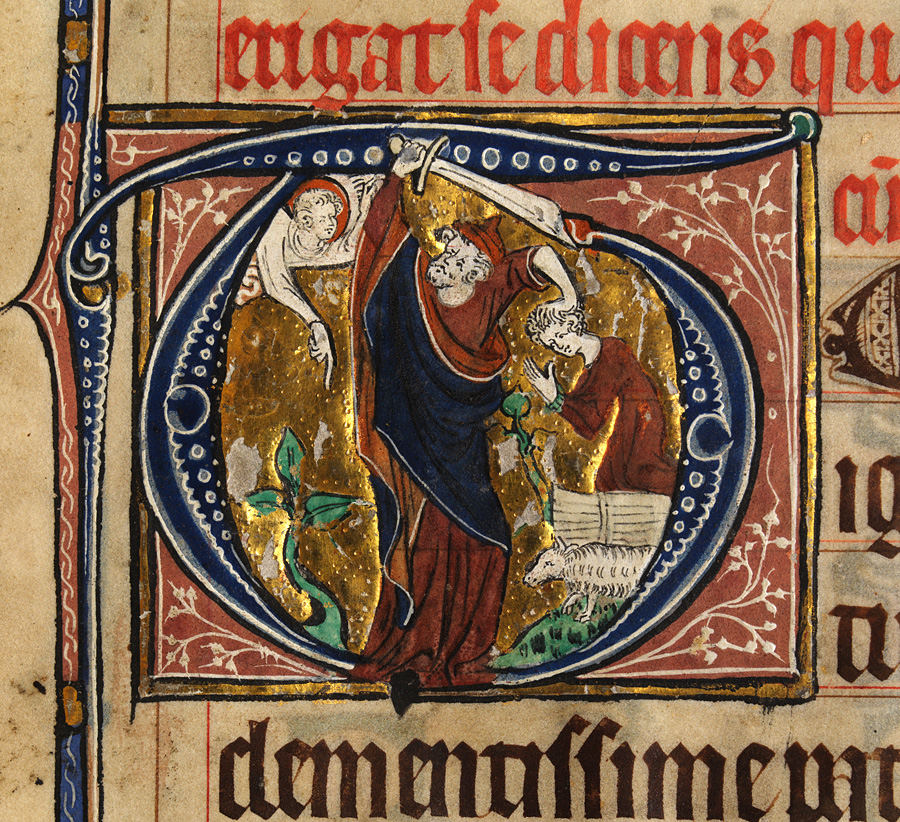 erigat se dicens qu
TE
ig
clementissime pat